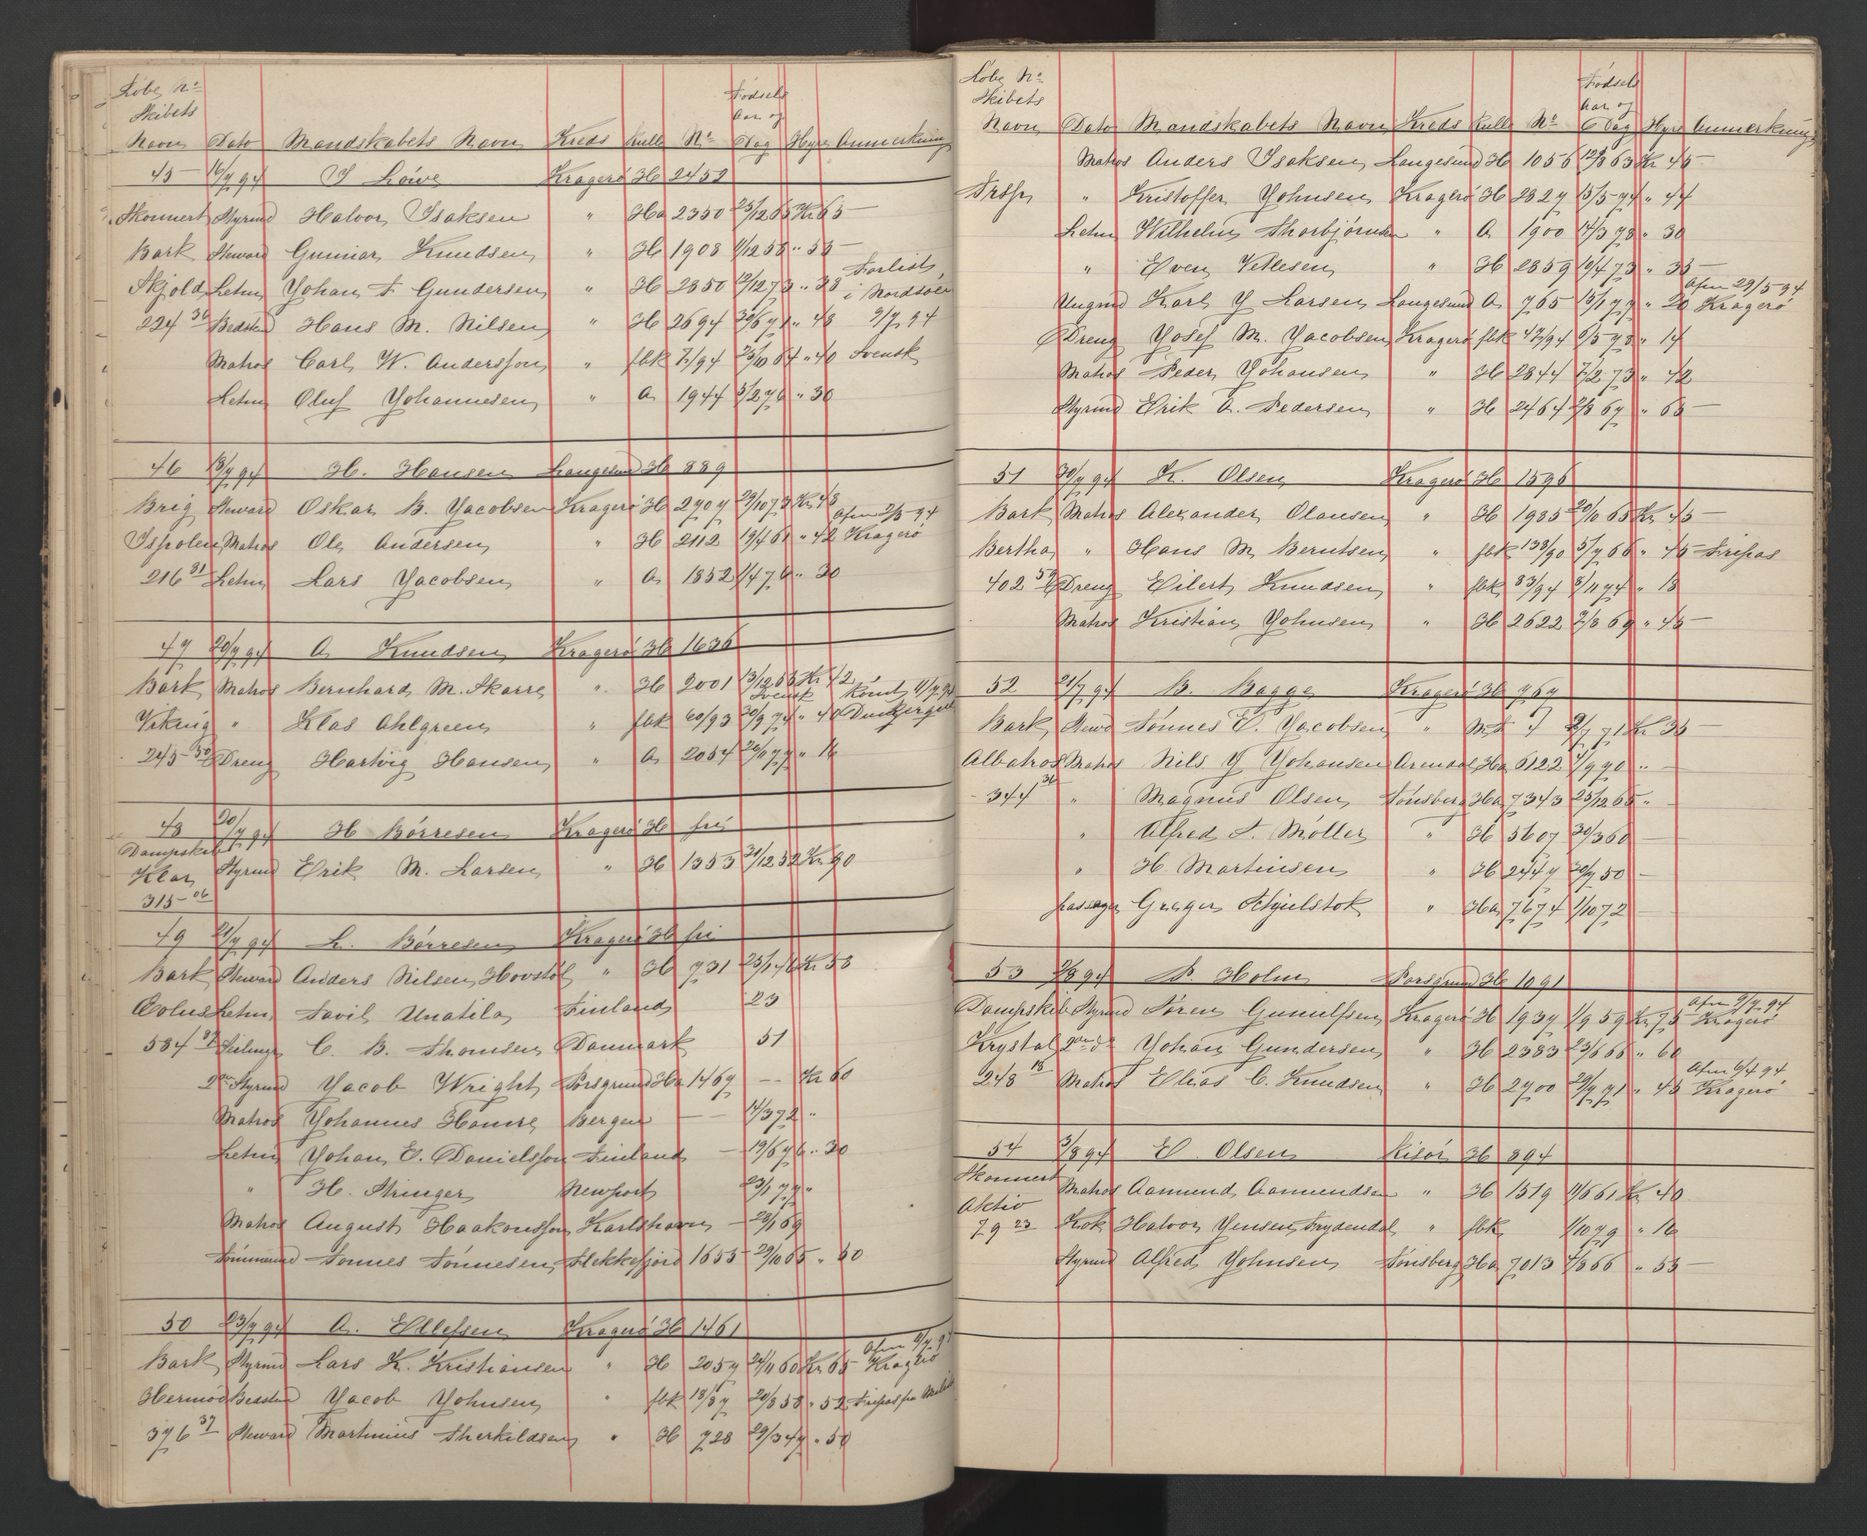 Løbe No
Skibets
Navn Dato Mandskabets Navn Kreds Rulle No Fødsels Aar og Dag Hyre Anmerkning
45 16/7 94 J Løwe Kragerø H 2452
Skonnert Styrmd Halvor Isaksen " Ha 2350 25/12 65 Kr 65 —
Bark Steward Gunnar Knudsen " H 1908 1/12 56 " 55 —
Skjold Letm Johan F Gundersen " H 2850 12/12 73 " 38 Forlist i Nordsøen
224 36 Bedstm Hans M. Nilsen " H 2694 30/6 71 " 48 9/7 94
Matros Carl W. Andersson " fbk 7/94 25/10 64 " 40 Svensk
Letm Oluf Johannesen " A 1944 5/2 76 " 30
46 18/7 94 H. Hansen Langesund H 889
Brig Steward Oskar B. Jacobsen Kragerø H 2707 29/10 73 Kr 48 Afm 2/5 94
Ispolen Matros Ole Andersen " H 2112 19/4 61 " 42 Kragerø
216 81 Letm Lars Jacobsen " A 1852 1/4 76 " 30
47 20/7 94 A Knudsen Kragerø H 1636
Bark Matros Bernhard M. Skarre " H 2001 13/12 65 Kr 42
Viking " Klas Ahlgreen " fbk 60/93 30/9 74 " 40 Svensk
245 50 Dreng Hartvig Hansen " A 2054 20/1 77 " 16
48 20/7 94 H Børresen Kragerø H fri
Dampskib Styrmd Erik M. Larsen " H 1353 31/12 52 Kr 90
Klar
315 06
49 21/7 94 L. Børresen Kragerø H fri
Bark Steward Anders Nilsen Hovstøl " H 731 25/1 46 Kr 58
Eolus Letm Savil Unatila Finland 23
584 87 C. B. Thomsen Danmark 51
2den Styrmd Jacob Wright Porsgrund Ha 1467 — Kr 60
Matros Johannes Hamre Bergen — 14/3 72 "
Letm Johan E. Danielsson Finland — 19/6 76 " 30
" H. Stinger Newport 23/1 77 "
Matros August Haakonsson Karlshavn — 28/1 69
Tømmermd Tønnes Tønnesen Flekkefjord 1655 — 29/10 65 " 50
50 23/7 94 A. Ellefsen Kragerø H 1461
Bark Styrmd Lars K. Kristiansen " H 2057 24/11 60 Kr 65 Kragerø
Hermod Bedstm Jacob Johnsen " fbk 18/87 20/8 58 " 52
376 37 Steward Martinius Therkildsen " H 728 29/3 47 " 50
Løbe No
Skibets
Navn Dato Mandskabets Navn Kreds Rulle No Fødsels Aar og Dag Hyre Anmerkning
Matros Anders Isaksen Langesund H 1056 12/8 63 Kr 45 —
" Kristoffer Johnsen Kragerø H 2827 15/5 74 " 44
Letm Wilhelm Thorbjørnsen " A 1900 14/3 78 " 30
" Even Vetlesen " H 2859 10/4 73 " 35 —
Ungmd Karl J Larsen Langesund A 765 15/1 77 " 20 Afm 29/5 94 Kragerø
Dreng Josef M. Jacobsen Kragerø fbk 42/94 6/5 78 " 14
Matros Peder Johansen " H 2844 7/2 73 " 42
Styrmd Erik A. Pedersen " H 2464 2/8 67 " 65 —
51 30/7 94 K. Olsen Kragerø H 1596
Bark Matros Alexander Olausen " H 1985 20/10 65 Kr 45 —
Bertha " Hans M Berntsen " fbk 138/90 5/7 66 " 45 — Sirepas
402 59 Dreng Eilert Knudsen " fbk 83/94 8/11 74 " 18
Matros Kristian Johnsen " H 2622 2/8 69 " 45 —
52 21/7 94 B. Bagge Kragerø H 767
Bark Stewd Tønnes E. Jacobsen " 2/7 71 Kr 35 —
Albatros Matros Nils J Johansen Arendal Ha 6122 4/9 70 " —
344 36 " Magnus Olsen Tønsberg Ha 7343 25/12 65 " —
" Alfred A. Møller " H 5607 30/3 60 —
" H. Martinsen " H 2447 30/9 50 —
passager Greger Schjelstok " Ha 7674 1/10 72 —
53 2/8 94 P. Holm Porsgrund H 1091
Dampskib Styrmd Søren Gunulfsen Kragerø H 1937 1/9 59 Kr 75 Afm 9/7 94 Kragerø
Krystal 2den do Johan Gundersen " H 2383 23/6 66 " 60
248 18 Matros Elias C. Knudsen " H 2700 29/7 71 " 45 Afm 6/4 94 Kragerø
54 3/8 94 E. Olsen Risør H 894
Skonnert Matros Aamund Aamundsen " H 1519 11/6 61 Kr 40
Aktiv
79 23 Kok Halvor Jensen Frydendal " fbk 1/10 79 " 16
Styrmd Alfred Johnsen Tønsberg Ha 7013 4/8 66 " 55 —